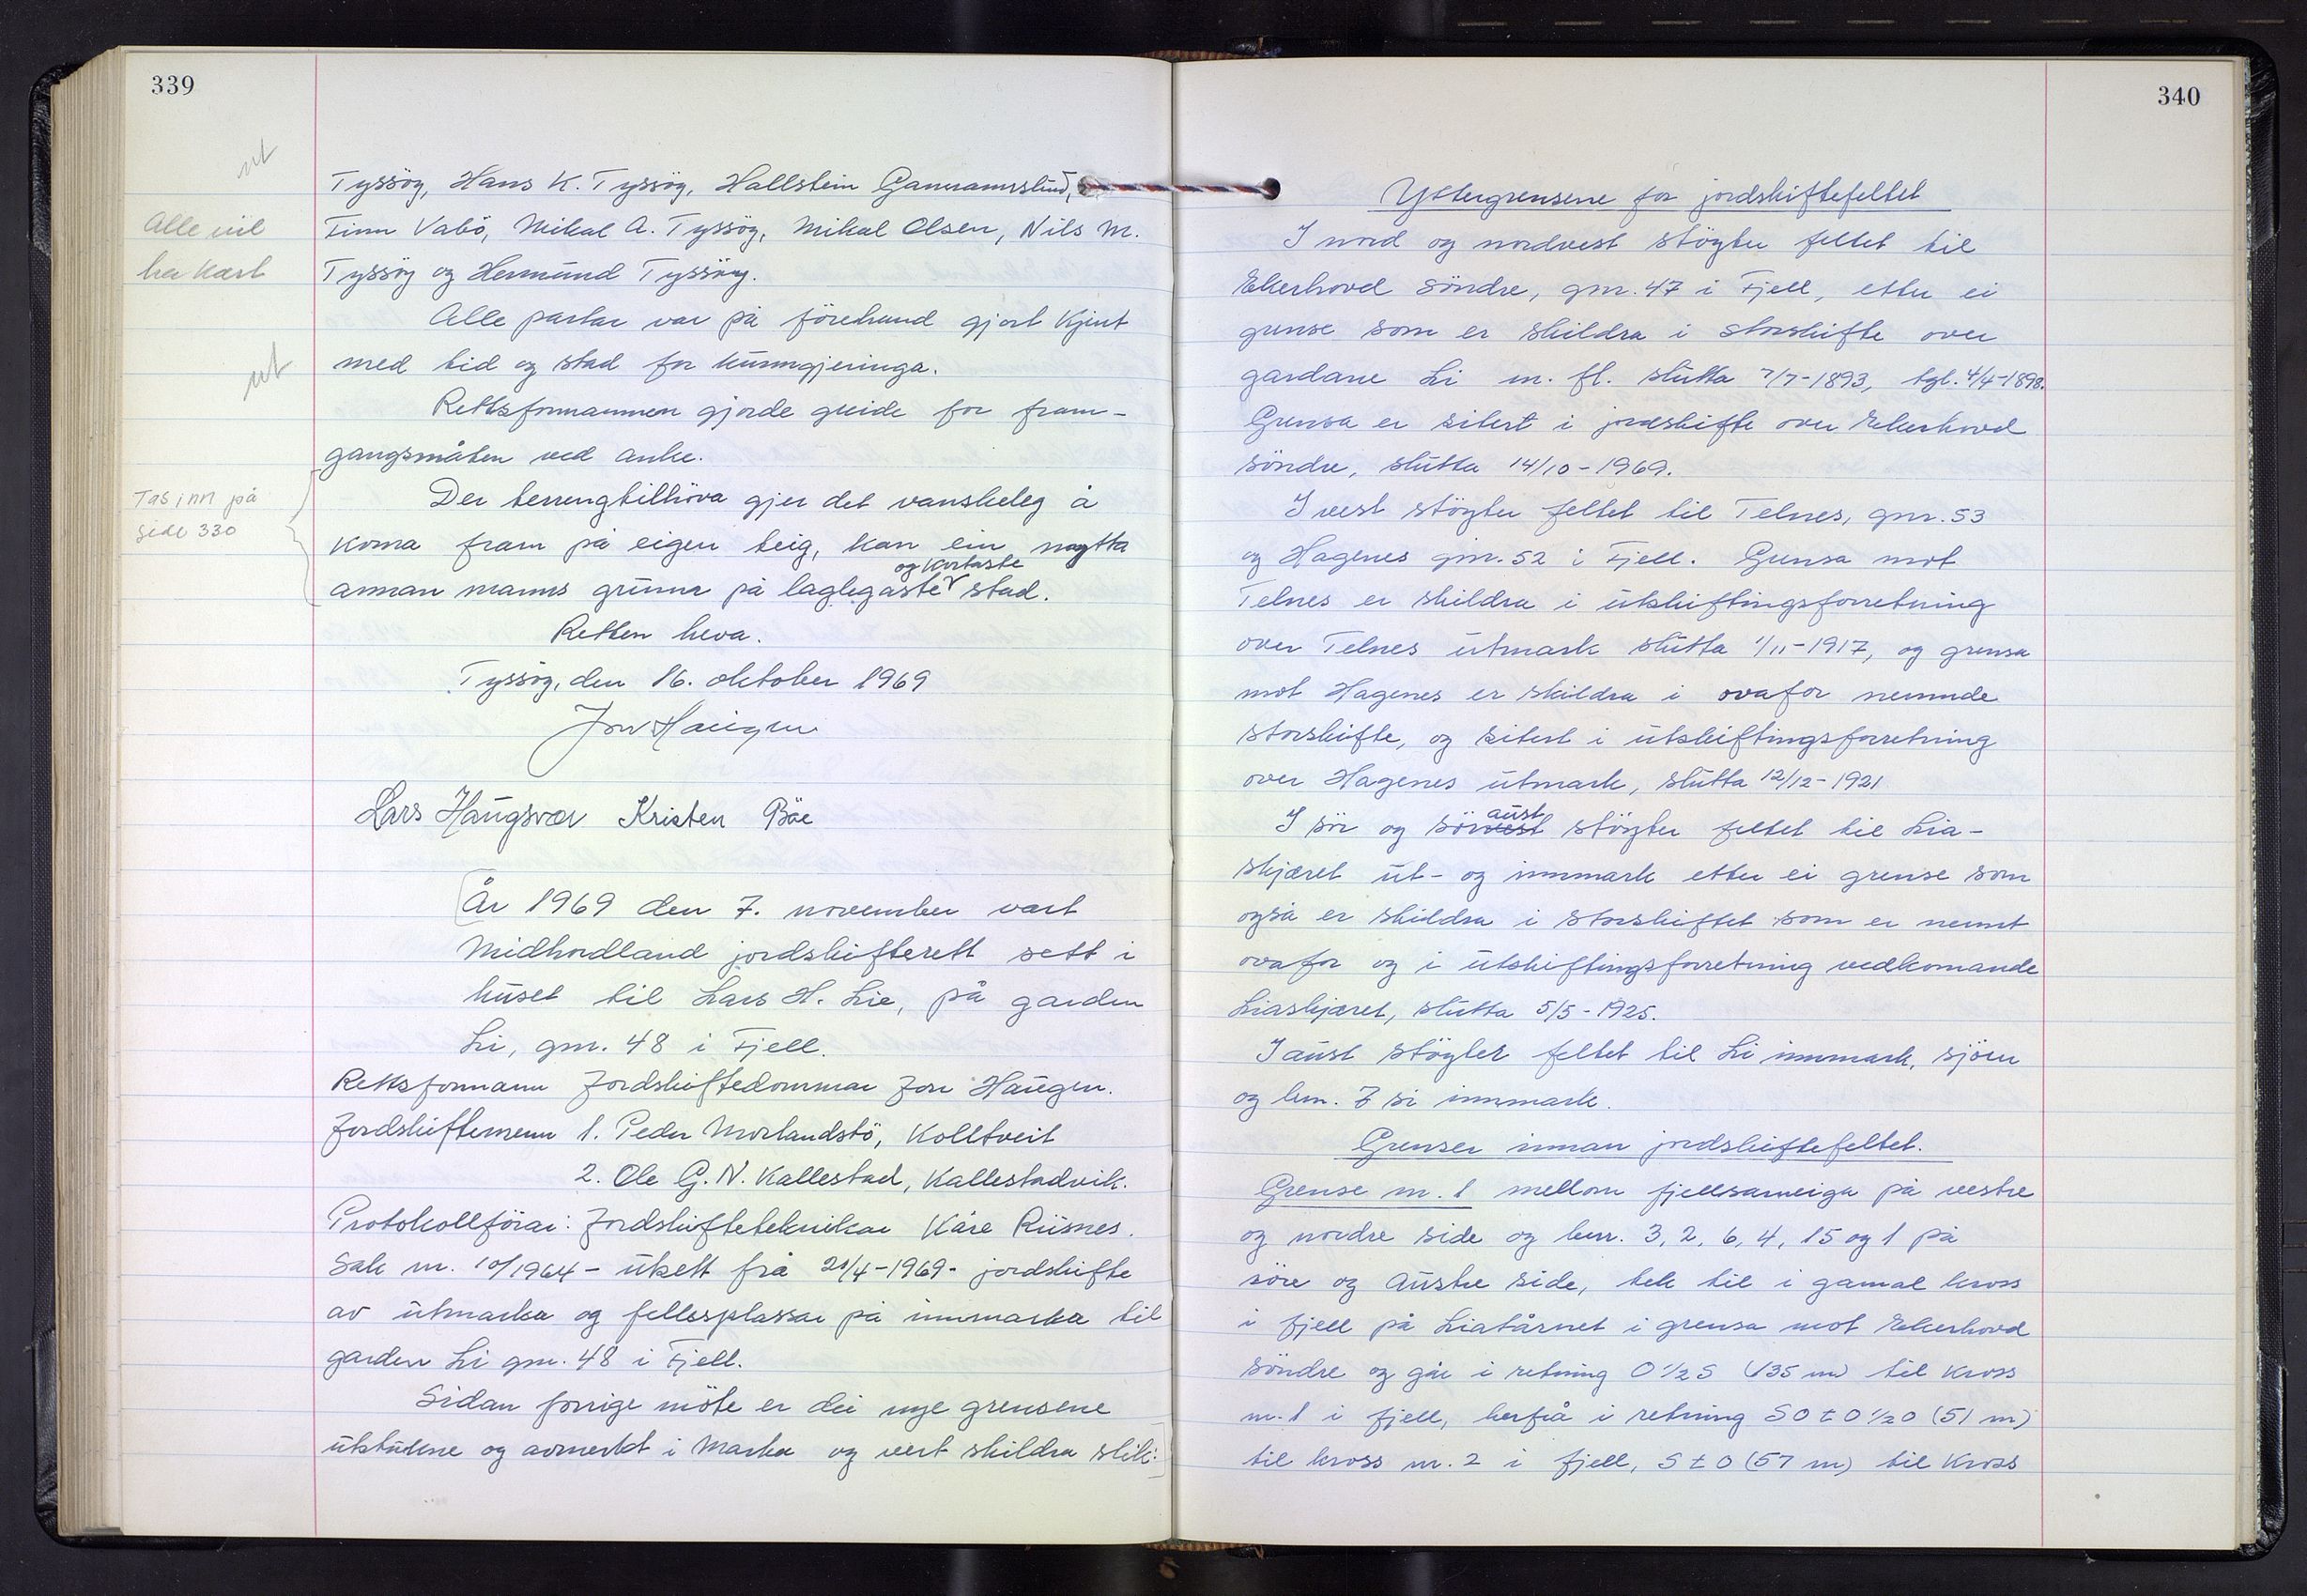 339
ut
Tyssöy, Hans K. Tyssöy, Hallstein Gammarslund,
Finn Vabö, Mikal A. Tyssöy, Mikal Olsen, Nils M.
Tyssöy og Hermund Tyssöy.
Alle vil
ha kart
Alle partar var på förehand gjort kjent
med tid og stad for kunngjeringa.
ut
Rettsformannen gjorde greide for fram-
gangsmåten ved anke.
Tas inn på
side 330
Der terrengtilhöva gjer det vanskeleg å
koma fram på eigen teig, kan ein nytta
og kortaste
annan manns grunn på laglegaste stad.
Retten heva.
Tyssöy, den 16. oktober 1969
Jon Haugen
Lars Haugsvær Kristen Böe
År 1969 den 7. november vart
Midhordland jordskifterett sett i
huset til Lars H. Lie, på garden
Li, gnr. 48 i Fjell.
Rettsformann Jordskiftedommar Jon Haugen.
Jordskiftemenn 1. Peder Morlandstö, Kolltveit
2. Ole G. N. Kallestad, Kallestadvik.
Protokollförar: Jordskifteteknikar Kåre Riisnes.
Sak nr. 10/1964 - utsett frå 21/4-1969 - jordskifte
av utmarka og fellesplassar på innmarka til
garden Li gnr. 48 i Fjell.
Sidan forrige möte er dei nye grensene
utstukne og avmerkt i marka og vert skildra slik:
340
Yttergrensene for jordskiftefeltet
I nord og nordvest stöyter feltet til
Ekerhovd söndre, gnr. 47 i Fjell, etter ei
grense som er skildra i storskifte over
gardane Li m. fl. slutta 7/7-1893, tgl. 4/4-1898.
Grensa er sitert i jordskifte over Ekerhovd
söndre, slutta 14/10-1969.
I vest stöyter feltet til Telnes, gnr. 53
og Hagenes gnr. 52 i Fjell. Grensa mot
Telnes er skildra i utskiftingsforretning
over Telnes utmark slutta 1/11-1917, og grensa
mot Hagenes er skildra i ovafor nemnde
storskifte, og sitert i utskiftingsforretning
over Hagenes utmark, slutta 12/12-1921
aust
I sör og sörvest stöyter feltet til Lia-
skjæret ut- og innmark etter ei grense som
også er skildra i storskiftet som er nemnt
ovafor og i utskiftingsforretning vedkomande
Liaskjæret, slutta 5/5-1925.
I aust stöyter feltet til Li innmark, sjöen
og bnr. 7 si innmark.
Grenser innan jordskiftefeltet.
Grense nr. 1 mellom fjellsameiga på vestre
og nordre side og bnr. 3, 2, 6, 4, 15 og 1 på
söre og austre side, tek til i gamal kross
i fjell på Liatårnet i grensa mot Ekerhovd
söndre og går i retning O 1/2 S (135 m) til kross
nr. 1 i fjell, herfrå i retning SO t O 1/2 O (51 m)
til kross nr. 2 i fjell, S t O (57 m) til kross